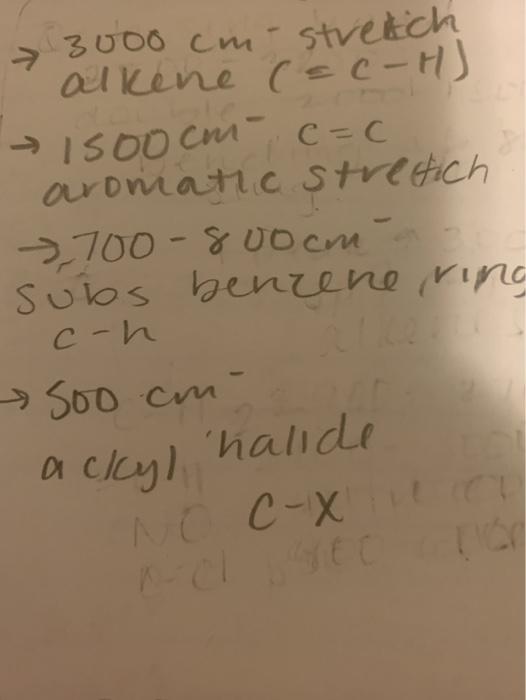 → 3000 cm⁻ stretch
alkene (=C-H)
→ 1500cm⁻ C=C
aromatic stretch
→ 700-800cm⁻
subs benzene ring
C-H
→ 500 cm⁻
alkyl halide
C-X